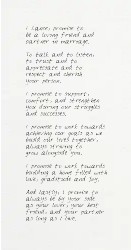 I        , promise to
be a loving friend and
partner in marriage.
To talk and to listen,
to trust and to
appreciate and to
respect and cherish
your person.
I promise to support,
comfort, and strengthen
you during our struggles
and successes.
I promise to work towards
achieving our goals as we
build our lives together,
always striving to
grow alongside you.
I promise to work towards
building a home filled with
love, gratitude and joy.
And lastly, I promise to
always be by your side
as your lover, your best
friend, and your partner
as long as I live.